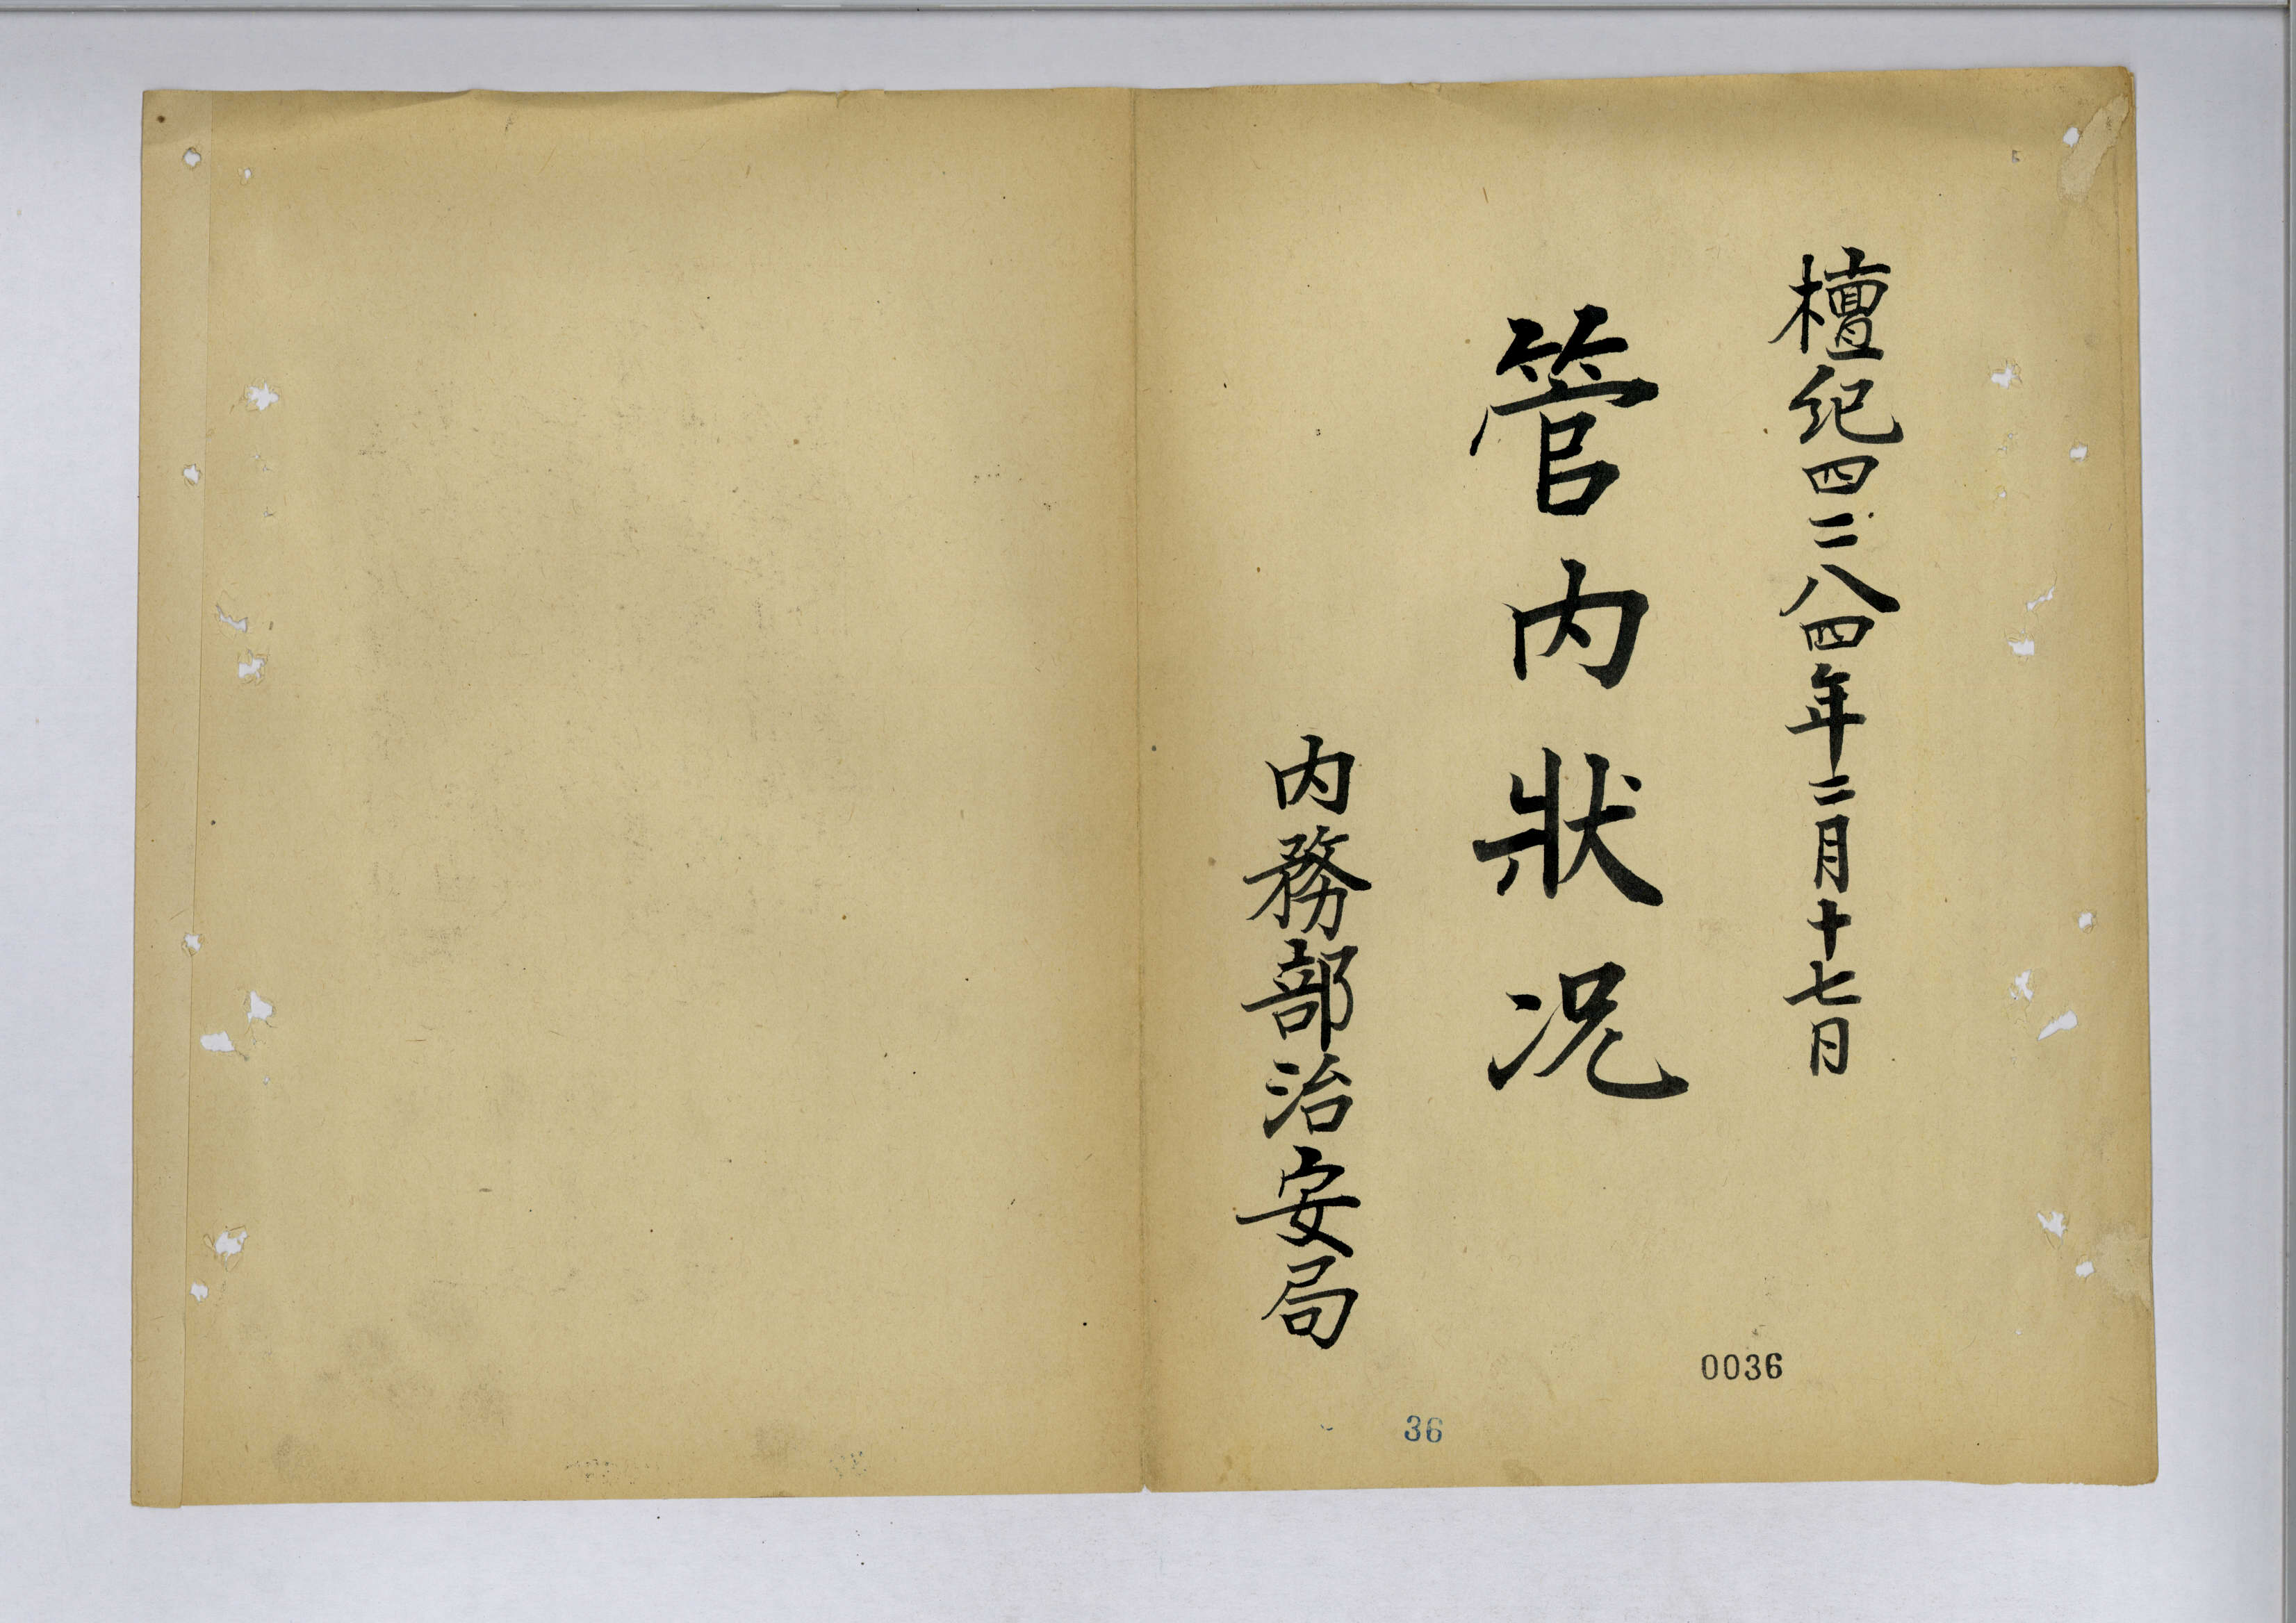 檀紀四二八四年二月十七日
管内狀況
内務部治安局
0036
36